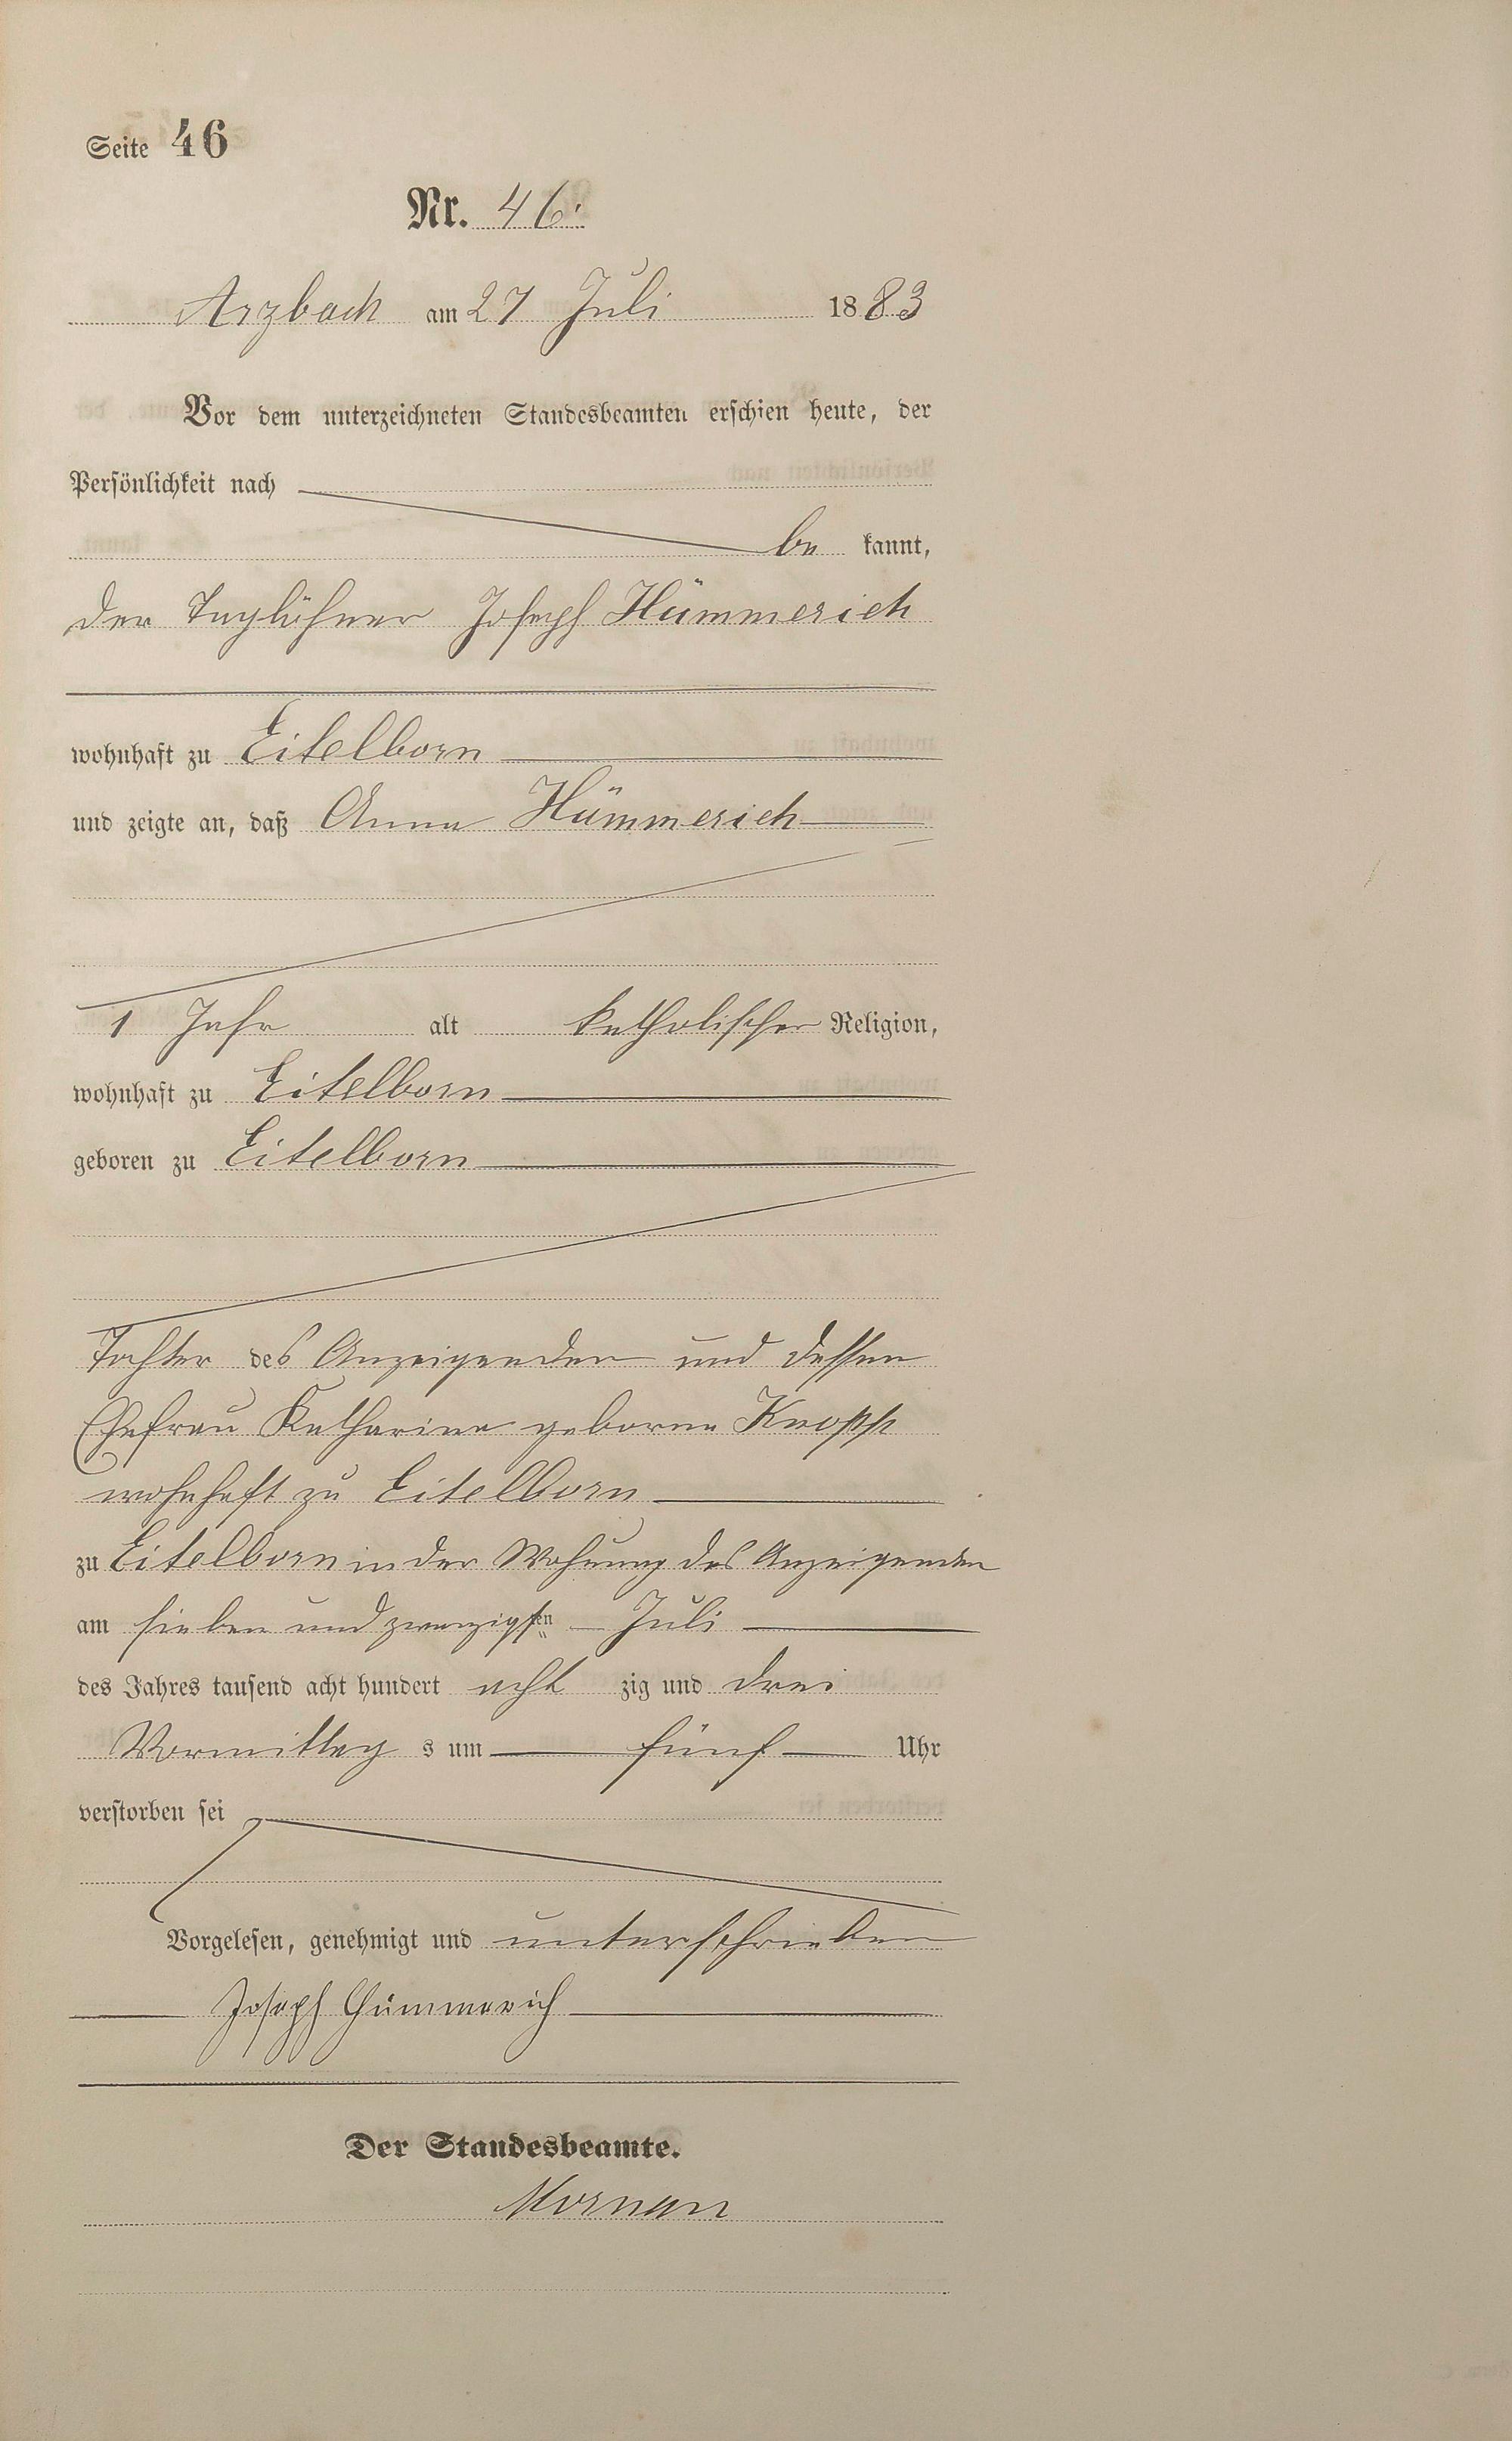 Seite 46
Nr. 46.
Arzbach am 27 Juli 1883
Vor dem unterzeichneten Standesbeamten erschien heute, der
Persönlichkeit nach
be kannt,
der Taglöhner Joseph Hümmerich
wohnhaft zu Eitelborn
und zeigte an, daß Anna Hümmerich
1 Jahr alt katholischer Religion,
wohnhaft zu Eitelborn
geboren zu Eitelborn
Tochter des Anzeigenden und dessen
Ehefrau Katharina geborne Knopp
wohnhaft zu Eitelborn
zu Eitelborn in der Wohnung des Anzeigenden
am sieben und zwanzigsten Juli
des Jahres tausend acht hundert acht zig und drei
Vormittag s um fünf Uhr
verstorben sei
Vorgelesen, genehmigt und unterschrieben
Joseph Hümmerich
Der Standesbeamte.